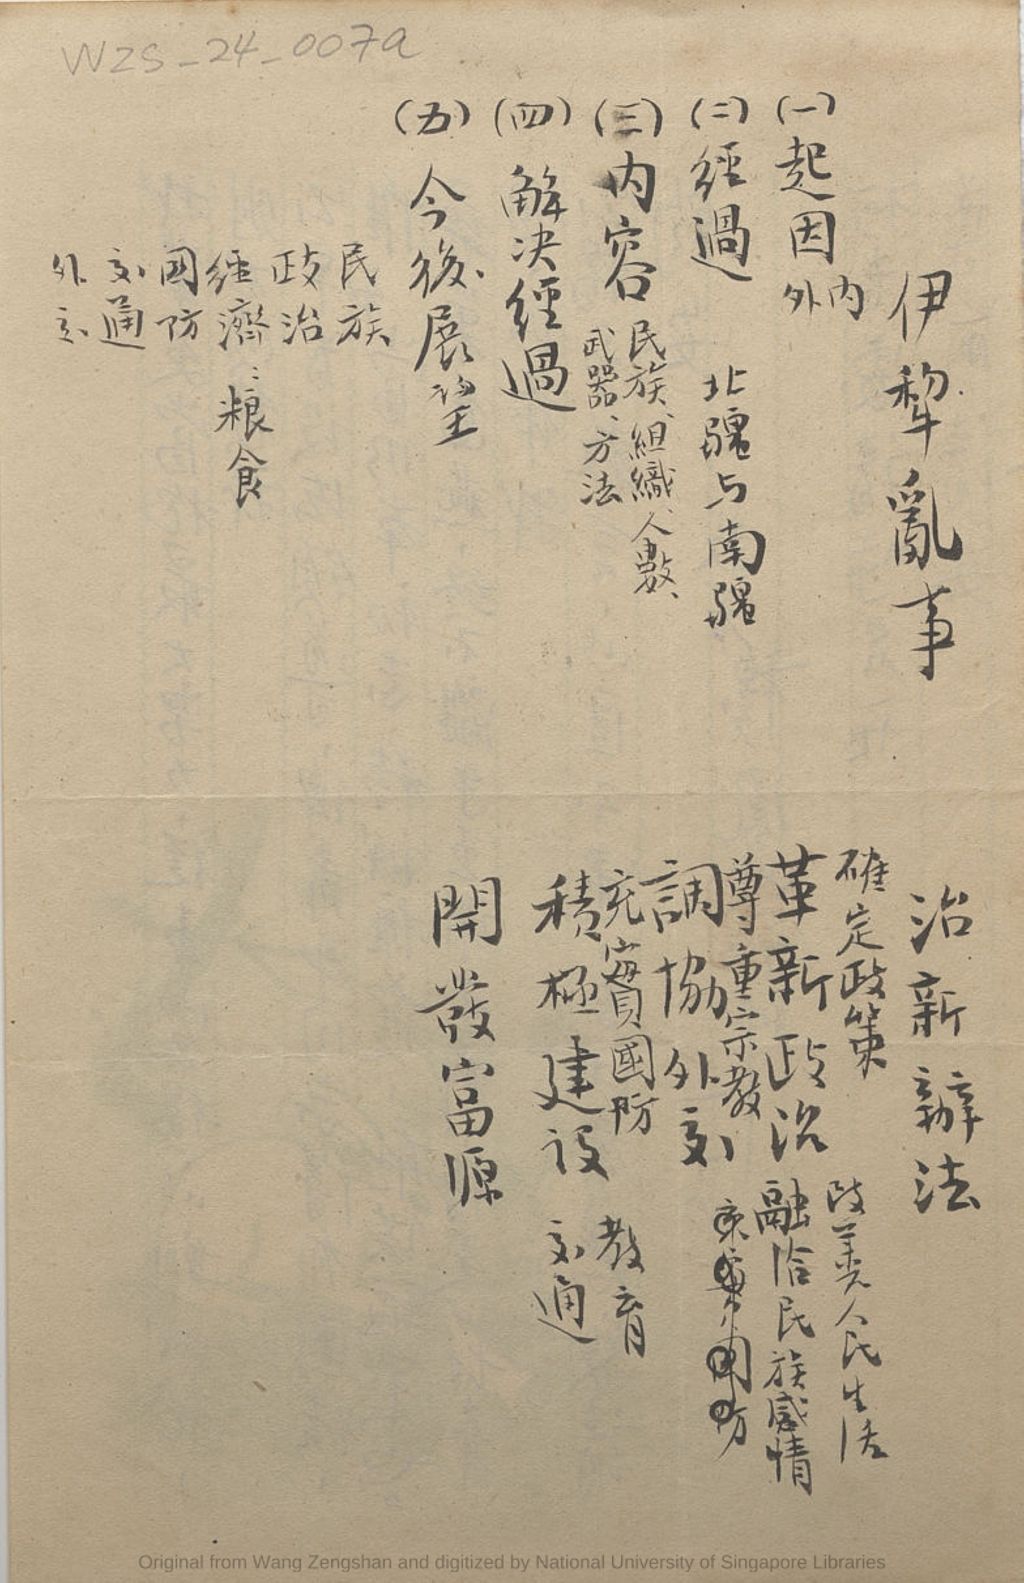 WZS_24_007a
伊犂亂事
(一)起因 內
外
(二)經過 北疆与南疆
(三)內容 民族、組織、人數、
武器、方法
(四)解決經過
(五)今後展望
民族
政治
經濟、粮食
國防
交通
外交
治新辦法
確定政策 改善人民生活
革新政治 融洽民族感情
尊重宗教
調協外交
充實國防 教育
積極建设 交通
開發富源
Original from Wang Zengshan and digitized by National University of Singapore Libraries